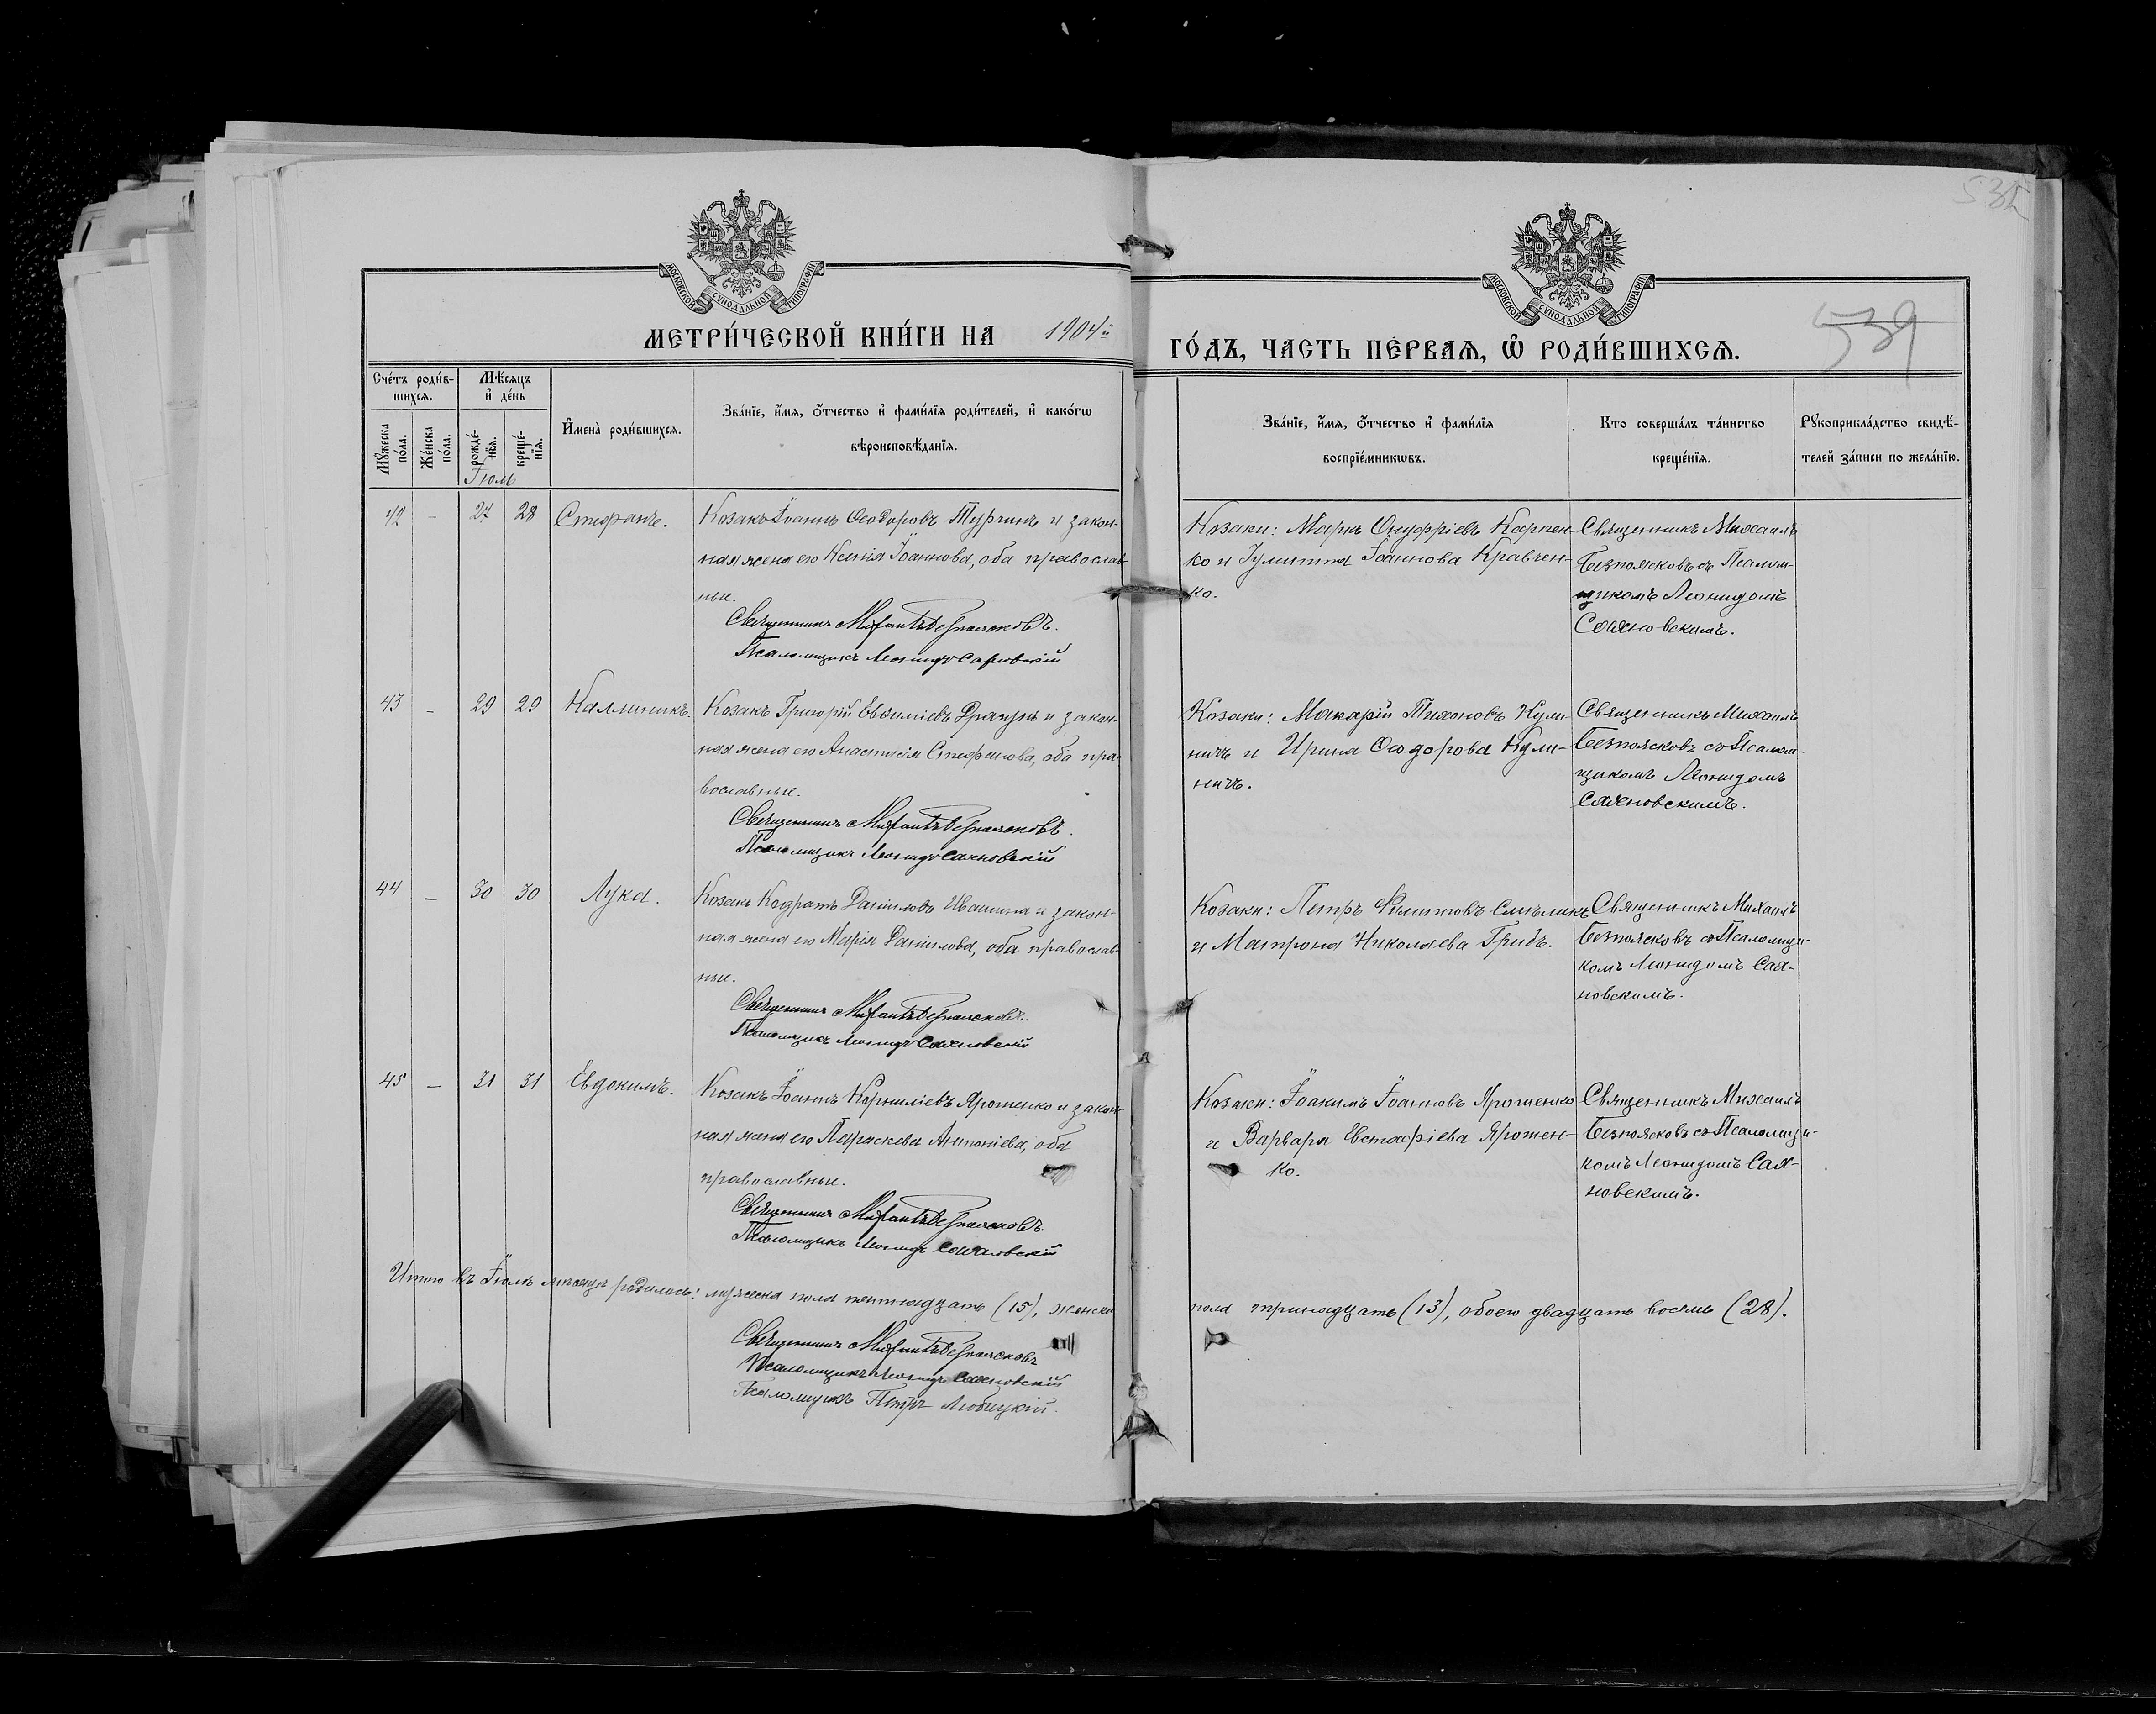 535
539
МОСКОВСКОЙ СѴНОДАЛЬНОЙ ТИПОГРАФІИ
МОСКОВСКОЙ СѴНОДАЛЬНОЙ ТИПОГРАФІИ
МЕТРИ́ЧЕСКОЙ КНИ́ГИ НА 1904й
ГО́ДЪ, ЧАСТЬ ПЕ́РВАѦ, Ѡ҆ РОДИ́ВШИХСѦ.
Сче́тъ роди́в-
шихсѧ.
Мѣ́сѧцъ
и҆ де́нь
Мꙋ́жеска
по́ла.
Же́нска
по́ла.
рожде́-
нїѧ.
креще́-
нїѧ.
И҆мена̀ роди́вшихсѧ.
Зва́нїе, и҆́мѧ, ѻ҆́тчество и҆ фами́лїѧ роди́телей, и҆ како́гѡ
вѣроисповѣ́данїѧ.
Зва́нїе, и҆́мѧ, ѻ҆́тчество и҆ фами́лїѧ
воспрїе́мникѡвъ.
Кто соверша́лъ та́инство
креще́нїѧ.
Рꙋкоприкла́дство свидѣ́-
телей за́писи по жела́нїю.
Іюль
42 – 27 28 Стефанъ.
Козакъ Іоаннъ Ѳеодоровъ Турчинъ и закон-
ная жена его Ксенія Іоаннова, оба православ-
ные.
Священникъ Михаилъ Безпоясковъ.
Псаломщикъ Леонидъ Сахновскій
Козаки: Маркъ Онуфріевъ Карпен-
ко и Іулитта Іоаннова Кравчен-
ко.
Священникъ Михаилъ
Безпоясковъ съ Псалом-
щикомъ Леонидомъ
Сахновскимъ.
43 – 29 29 Каллиникъ.
Козакъ Григорій Евѳиміевъ Драгунъ и закон-
ная жена его Анастасія Стефанова, оба пра-
вославные.
Священникъ Михаилъ Безпоясковъ.
Псаломщикъ Леонидъ Сахновскій
Козаки: Макарій Тихоновъ Кули-
ничъ и Ирина Ѳеодорова Кули-
ничъ.
Священникъ Михаилъ
Безпоясковъ съ Псалом-
щикомъ Леонидомъ
Сахновскимъ.
44 – 30 30 Лука.
Козакъ Кодратъ Даніиловъ Ивашина и закон-
ная жена его Марія Даніилова, оба православ-
ные.
Священникъ Михаилъ Безпоясковъ.
Псаломщикъ Леонидъ Сахновскій
Козаки: Петръ Филипповъ Смѣликъ
и Матрона Николаева Грибъ.
Священникъ Михаилъ
Безпоясковъ съ Псаломщи-
комъ Леонидомъ Сах-
новскимъ.
45 – 31 31 Евдокимъ.
Козакъ Іоаннъ Корниліевъ Ярошенко и закон-
ная жена его Параскева Антоніева, оба
православные.
Священникъ Михаилъ Безпоясковъ.
Псаломщикъ Леонидъ Сахновскій
Козаки: Іоакимъ Іоанновъ Ярошенко
и Варвара Евстафіева Ярошен-
ко.
Священникъ Михаилъ
Безпоясковъ съ Псаломщи-
комъ Леонидомъ Сах-
новскимъ.
Итого въ Іюлѣ мѣсяцѣ родилось: мужеска пола пятнадцать (15), женска
пола тринадцать (13), обоего двадцать восемь (28).
Священникъ Михаилъ Безпоясковъ
Псаломщикъ Леонидъ Сахновскій
Псаломщикъ Петръ Любицкій.